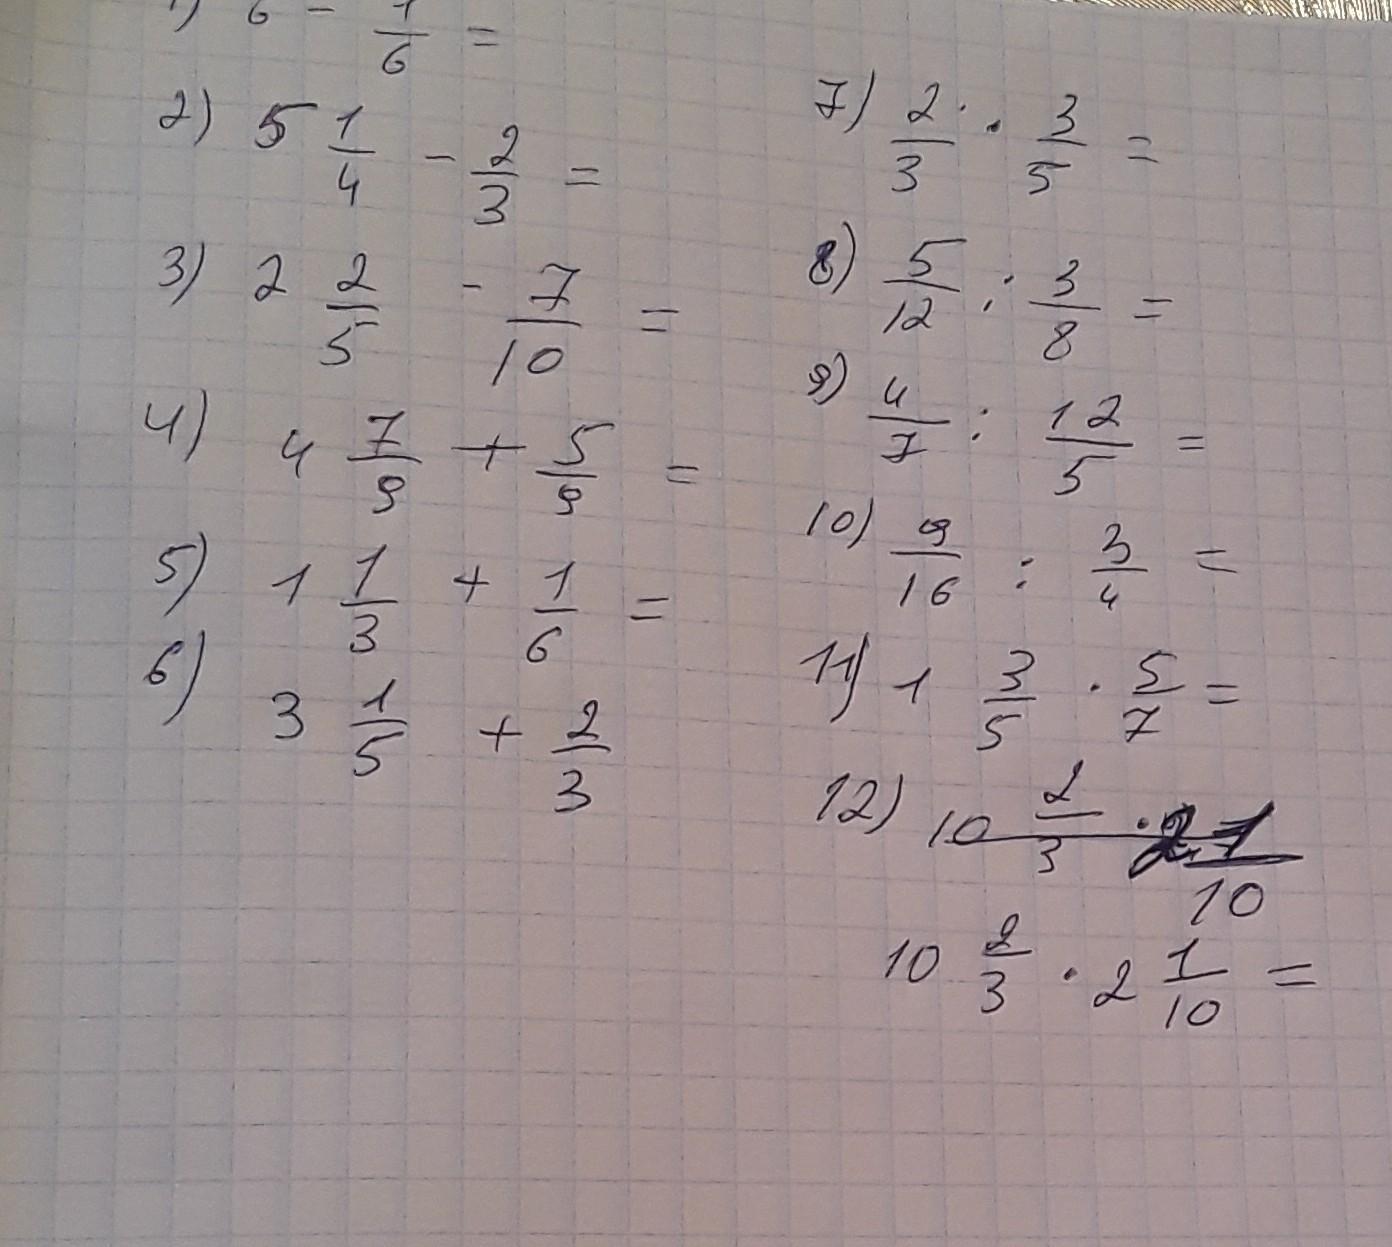 1) 6 - 1/6 =
2) 5 1/4 - 2/3 =
3) 2 2/5 - 7/10 =
4) 4 7/9 + 5/9 =
5) 1 1/3 + 1/6 =
6) 3 1/5 + 2/3
7) 2/3 · 3/5 =
8) 5/12 : 3/8 =
9) 4/7 : 12/5 =
10) 9/16 : 3/4 =
11) 1 3/5 · 5/7 =
12) 10 2/3 · 2 1/10
10 2/3 · 2 1/10 =